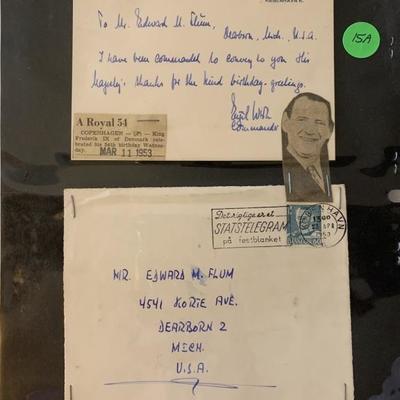 KØBENHAVN
15A
To Mr. Edward M. Flum,
Dearborn, Mich., U.S.A.
I have been commanded to convey to you His
Majesty's thanks for the kind birthday-greetings.
Commander
A Royal 54
COPENHAGEN — (AP) — King
Frederik IX of Denmark cele-
brated his 54th birthday Wednes-
day.
MAR 11 1953
Det rigtige er et
STATSTELEGRAM
på festblanket
MR. EDWARD M. FLUM
4541 KORTE AVE.
DEARBORN 2
MICH.
U.S.A.